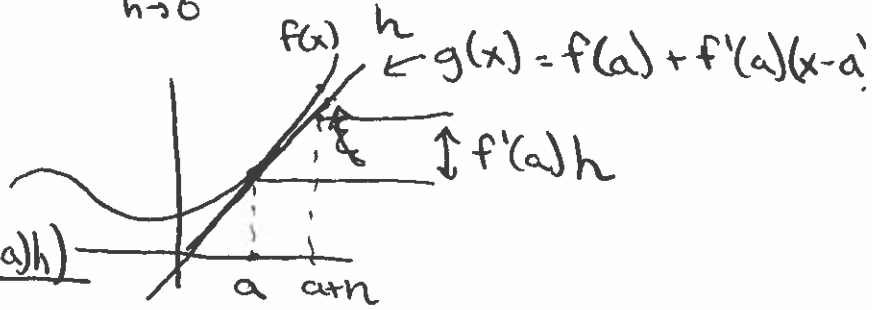 h→0
f(x)
h
g(x) = f(a) + f'(a)(x-a)
f'(a)h
a)h)
a
a+h